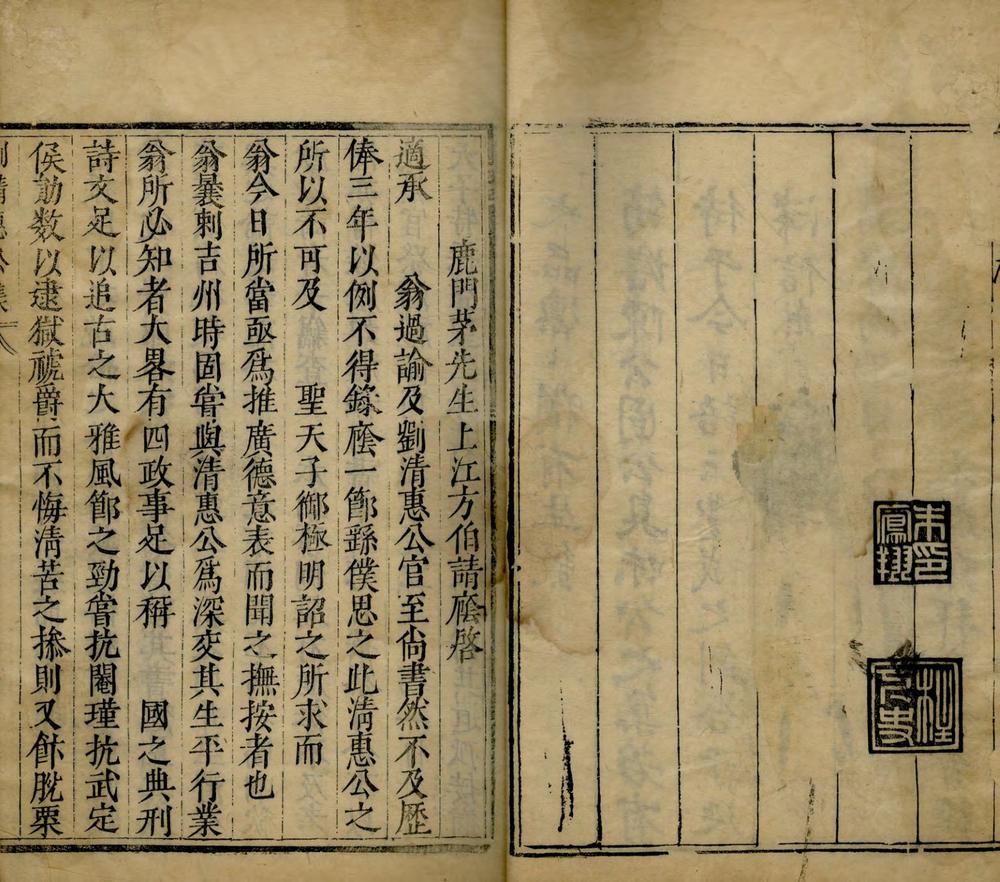 鹿門茅先生上江方伯請廕啓
適承　翁過諭及劉清惠公官至尚書然不及歷
俸三年以例不得錄廕一節繇僕思之此清惠公之
所以不可及　聖天子御極明詔之所求而
翁今日所當亟爲推廣德意表而聞之撫按者也
翁曩刺吉州時固嘗與清惠公爲深交其生平行業
翁所必知者大畧有四政事足以稱　國之典刑
詩文足以追古之大雅風節之勁嘗抗閹瑾抗武定
侯勛數以逮獄褫爵而不悔清苦之摻則又飰脫粟